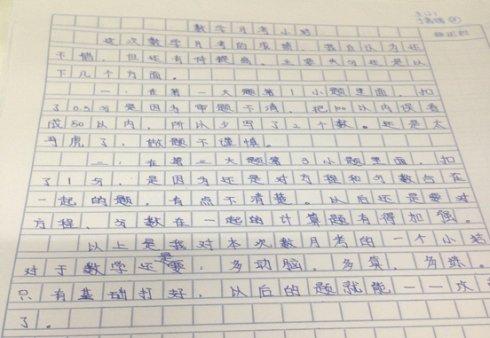 数学月考小结
这次数学月考的成绩，我自认为还
不错，但还有待提高。主要失分还是以
下几个方面。
一、在第一大题第1小题里面，扣
了0.5分是因为审题不清，把100以内误看
成50以内，所以少写了2个数。还是太
马虎了，做题不谨慎。
二、在第三大题第3小题里面，扣
了1分，是因为还是对方程和分数合在
一起的题，有点不清楚。以后还是要对
方程、分数在一起的计算题有得加强。
以上是我对本次数月考的一个小结
对于数学还是要，多动脑，多算，多练。
只有基础打好，以后的题就能一一攻
了。